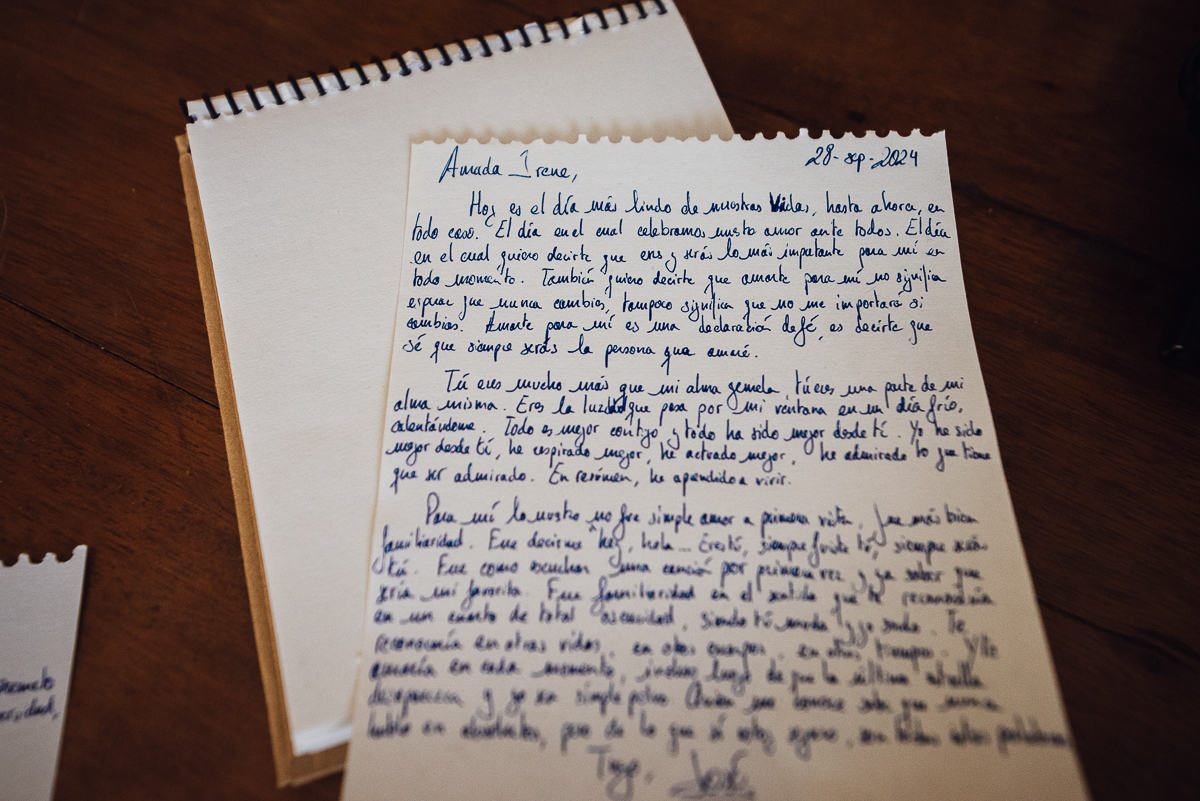 Amada Irene,
28-sep-2024
Hoy es el día más lindo de nuestras Vidas, hasta ahora, en
todo caso. El día en el cual celebramos nustro amor ante todos. El día
en el cual quiero decirte que eres y serás lo más importante para mí en
todo momento. También quiero decirte que amarte para mí no significa
esperar que nunca cambies, tampoco significa que no me importara si
cambias. Amarte para mí es una declaración de fé, es decirte que
sé que siempre serás la persona que amaré.
Tú eres mucho más que mi alma gemela, tú eres una parte de mi
alma misma. Eres la luz que pasa por mi ventana en un día frío,
calentándome. Todo es mejor contigo, y todo ha sido mejor desde tí. Yo he sido
mejor desde tí, he respirado mejor, he actuado mejor, he admirado lo que tiene
que ser admirado. En resúmen, he aprendido a vivir.
Para mí lo nuestro no fue simple amor a primera vista, fue más bien
familiaridad. Fue decirme hey, hola... Eres tú, siempre fuiste tú, siempre serás
tú. Fue como escuchar una canción por primera vez y ya saber que
sería mi favorita. Fue familiaridad en el sentido que te reconocería
en un cuarto de total oscuridad, siendo tú muda y yo sordo. Te
reconocería en otras vidas, en otros cuerpos, en otros tiempos. Y te
amaría en cada momento, incluso luego de que la última estrella
desaparezca y yo en simple polvo. Quien me conoce sabe que nunca
hablo en absolutos, pero de lo que sí estoy seguro, en todas estas palabras
Tuyo, José